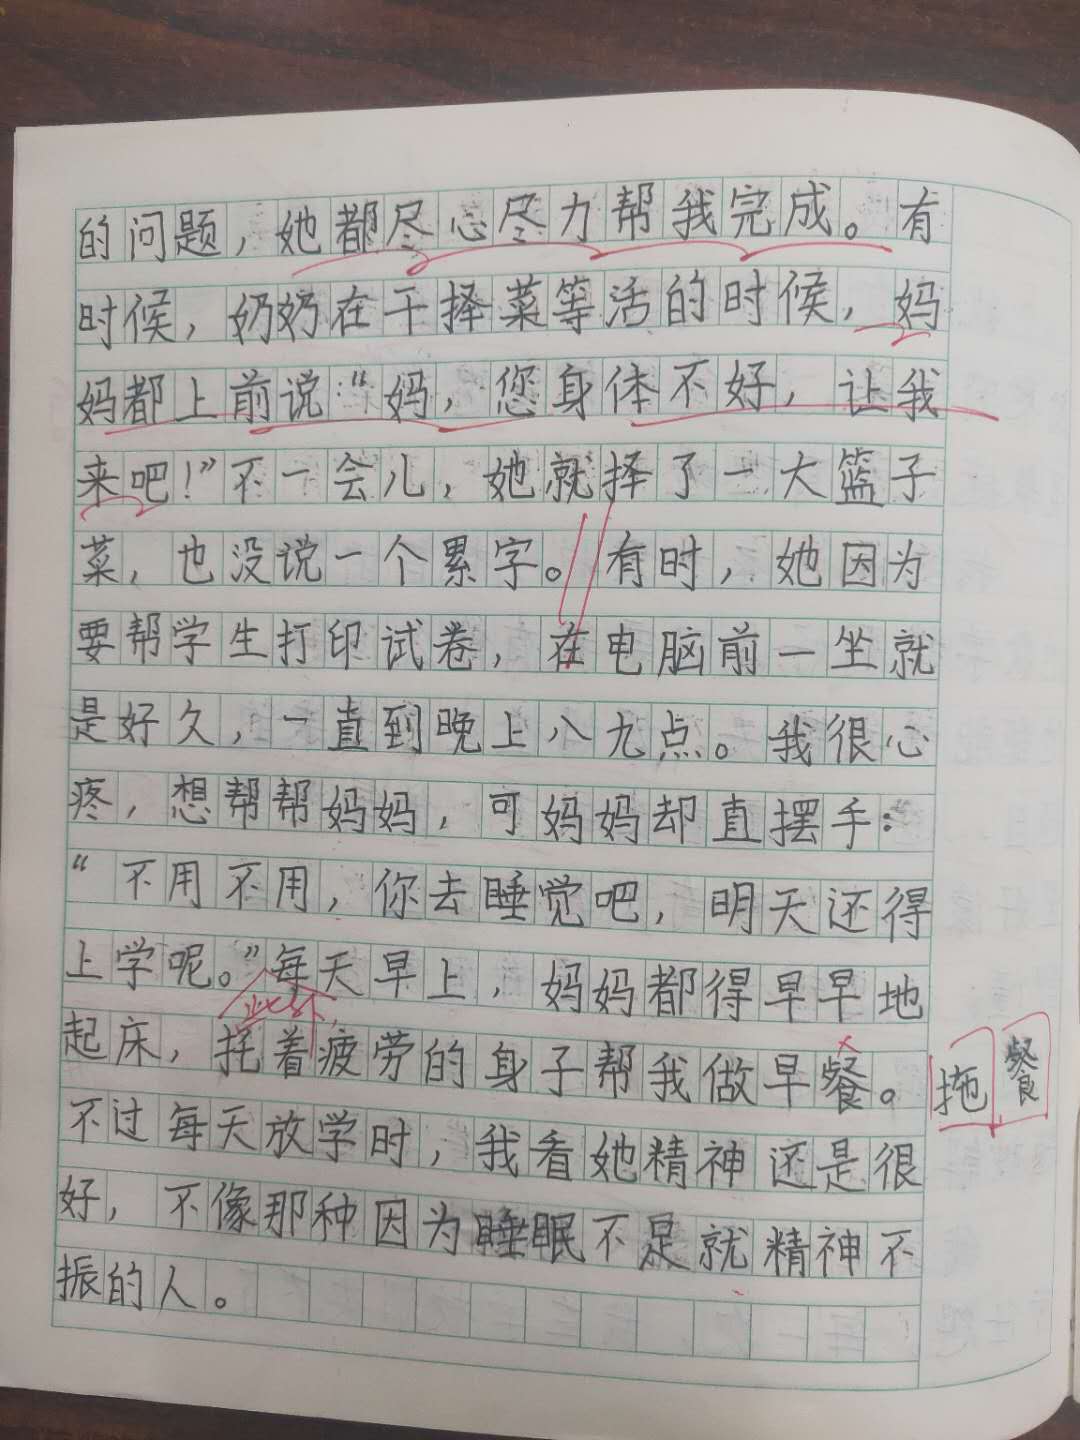 的问题，她都尽心尽力帮我完成。有
时候，奶奶在干择菜等活的时候，妈
妈都上前说“妈，您身体不好，让我
来吧！”不一会儿，她就择了一大篮子
菜，也没说一个累字。有时，她因为
要帮学生打印试卷，在电脑前一坐就
是好久，一直到晚上八九点。我很心
疼，想帮帮妈妈，可妈妈却直摆手：
“不用不用，你去睡觉吧，明天还得
上学呢。”每天早上，妈妈都得早早地
此外，
起床，拖着疲劳的身子帮我做早餐。
拖 餐
不过每天放学时，我看她精神还是很
好，不像那种因为睡眠不足就精神不
振的人。